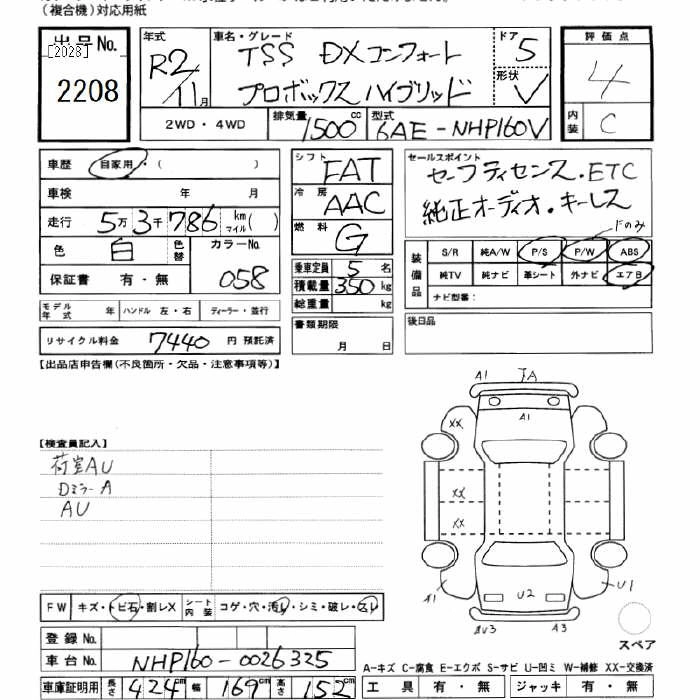 (複合機)対応用紙
出品No.
[2028]
2208
年式
R2/11月
車名・グレード
TSS DXコンフォート
プロボックスハイブリッド
ドア 5
形状 V
2WD・4WD
排気量 1500cc
型式 6AE-NHP160V
評価点
4
内装 C
車歴 自家用・( )
車検 年 月
走行 5万3千786 km マイル( )
色 白 色替 カラーNo. 058
保証書 有・無
モデル年式 年 ハンドル 左・右 ディーラー・並行
リサイクル料金 7440円 預託済
シフト FAT
冷房 AAC
燃料 G
乗車定員 5名
積載量 350kg
総重量 kg
書類期限
月 日
セールスポイント
セーフティセンス・ETC
純正オーディオ・キーレス
Fのみ
装備品
S/R 純A/W P/S P/W ABS
純TV 純ナビ 革シート 外ナビ エアB
ナビ型番:
後日品
【出品店申告欄(不良箇所・欠品・注意事項等)】
【検査員記入】
荷室AU
DミラーA
AU
A1 FA
A1
XX
XX
XX
A1 U2 U1
AU3 A3
スペア
FW キズ・トビ石・割レX シート内装 コゲ・穴・汚レ・シミ・破レ・スレ
登録No.
車台No. NHP160-0026325
車庫証明用 長さ 424cm 幅 169cm 高さ 152cm
A-キズ C-腐食 E-エクボ S-サビ U-凹ミ W-補修 XX-交換済
工具 有・無 ジャッキ 有・無